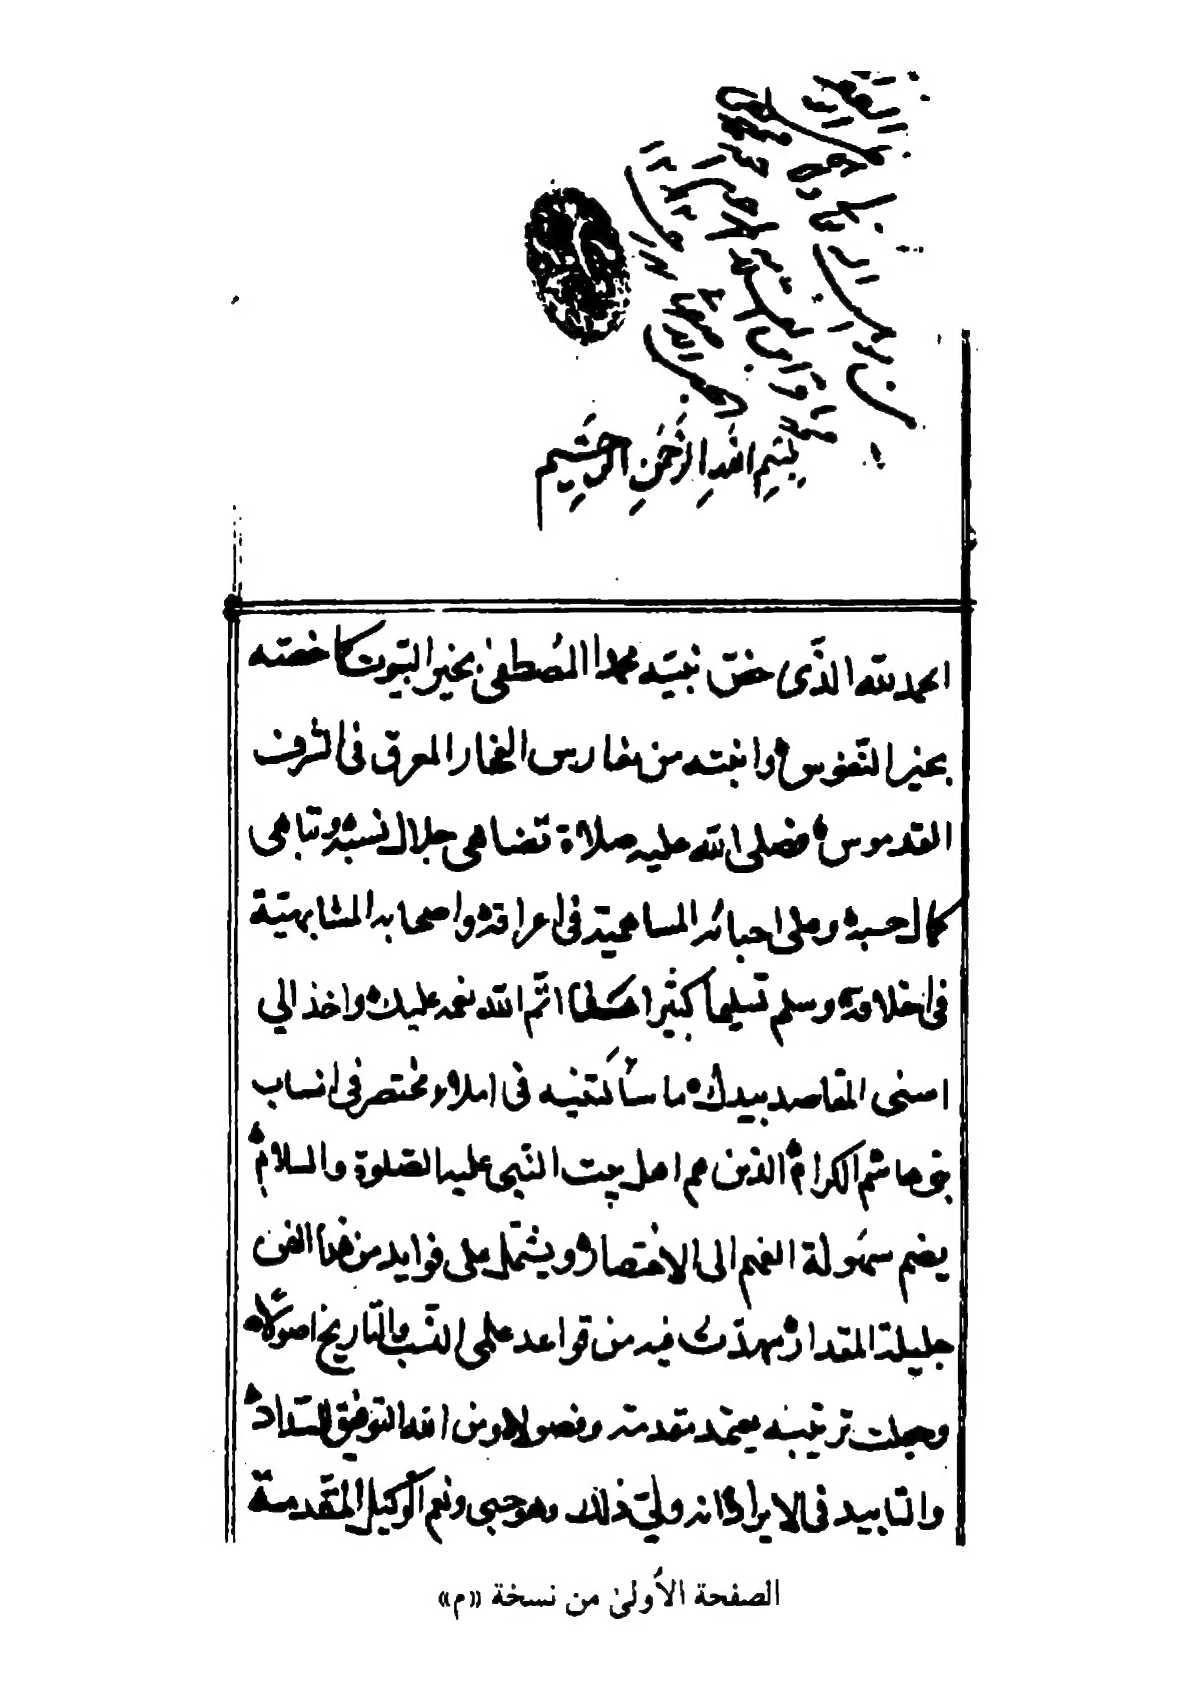 بِسْمِ اللهِ الرَّحْمٰنِ الرَّحِيْمِ
الحمد لله الذّى خصّ نبيّه محمدا المُصطفىٰ بخير البيوت كما خصّه
بخير النّفوس وانبته من مغارس الفخار المعرق فى الشرف
القدموس فصلى الله عليه صلاة تضاهى جلال نسبه وتباهى
كمال حسبه وعلى احبائه المساهمية فى اعراقه واصحابه المشابهيّة
فى اخلاقه وسلم تسليما كثيرا اتّم الله نعمه عليك واخذ الي
اسنى المقاصد بيدك ما سألتنيه فى املاء مختصر فى انساب
بنى هاشم الكرام الذين هم اهل بيت النّبى عليه الصّلوة والسلام
يضم سهُولة الفهم الى الاختصار ويشتمل على فوايد من هذا الفن
جليلة المقدار مهدّت فيه من قواعد علمى النّسب والتّاريخ اصولا
وجعلت ترتيبه مقدمة وفصولا ومن الله التوفيق للسّداد
والتاييد فى الايراد انه ولىّ ذلك وهو حسبى ونعم الوكيل المقّدمة
الصفحة الأولىٰ من نسخة «م»